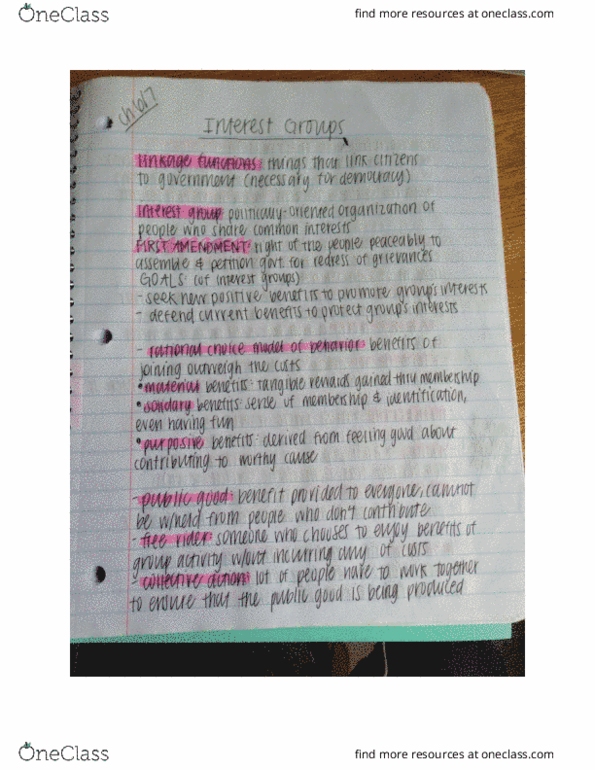 OneClass
find more resources at oneclass.com
ch 6/7
Interest Groups
linkage functions: things that link citizens
to government (necessary for democracy)
interest group: politically-oriented organization of
people who share common interests
FIRST AMENDMENT: right of the people peaceably to
assemble & petition govt. for redress of grievances
GOALS: (of interest groups)
- seek new positive benefits to promote group's interests
- defend current benefits to protect group's interests
- rational choice model of behavior: benefits of
joining outweigh the costs
• material benefits: tangible rewards gained thru membership
• solidary benefits: sense of membership & identification,
even having fun
• purposive benefits: derived from feeling good about
contributing to worthy cause
- public good: benefit provided to everyone, cannot
be w/held from people who don't contribute
- free rider: someone who chooses to enjoy benefits of
group activity w/out incurring any of costs
- collective action: lot of people have to work together
to ensure that the public good is being produced
OneClass
find more resources at oneclass.com